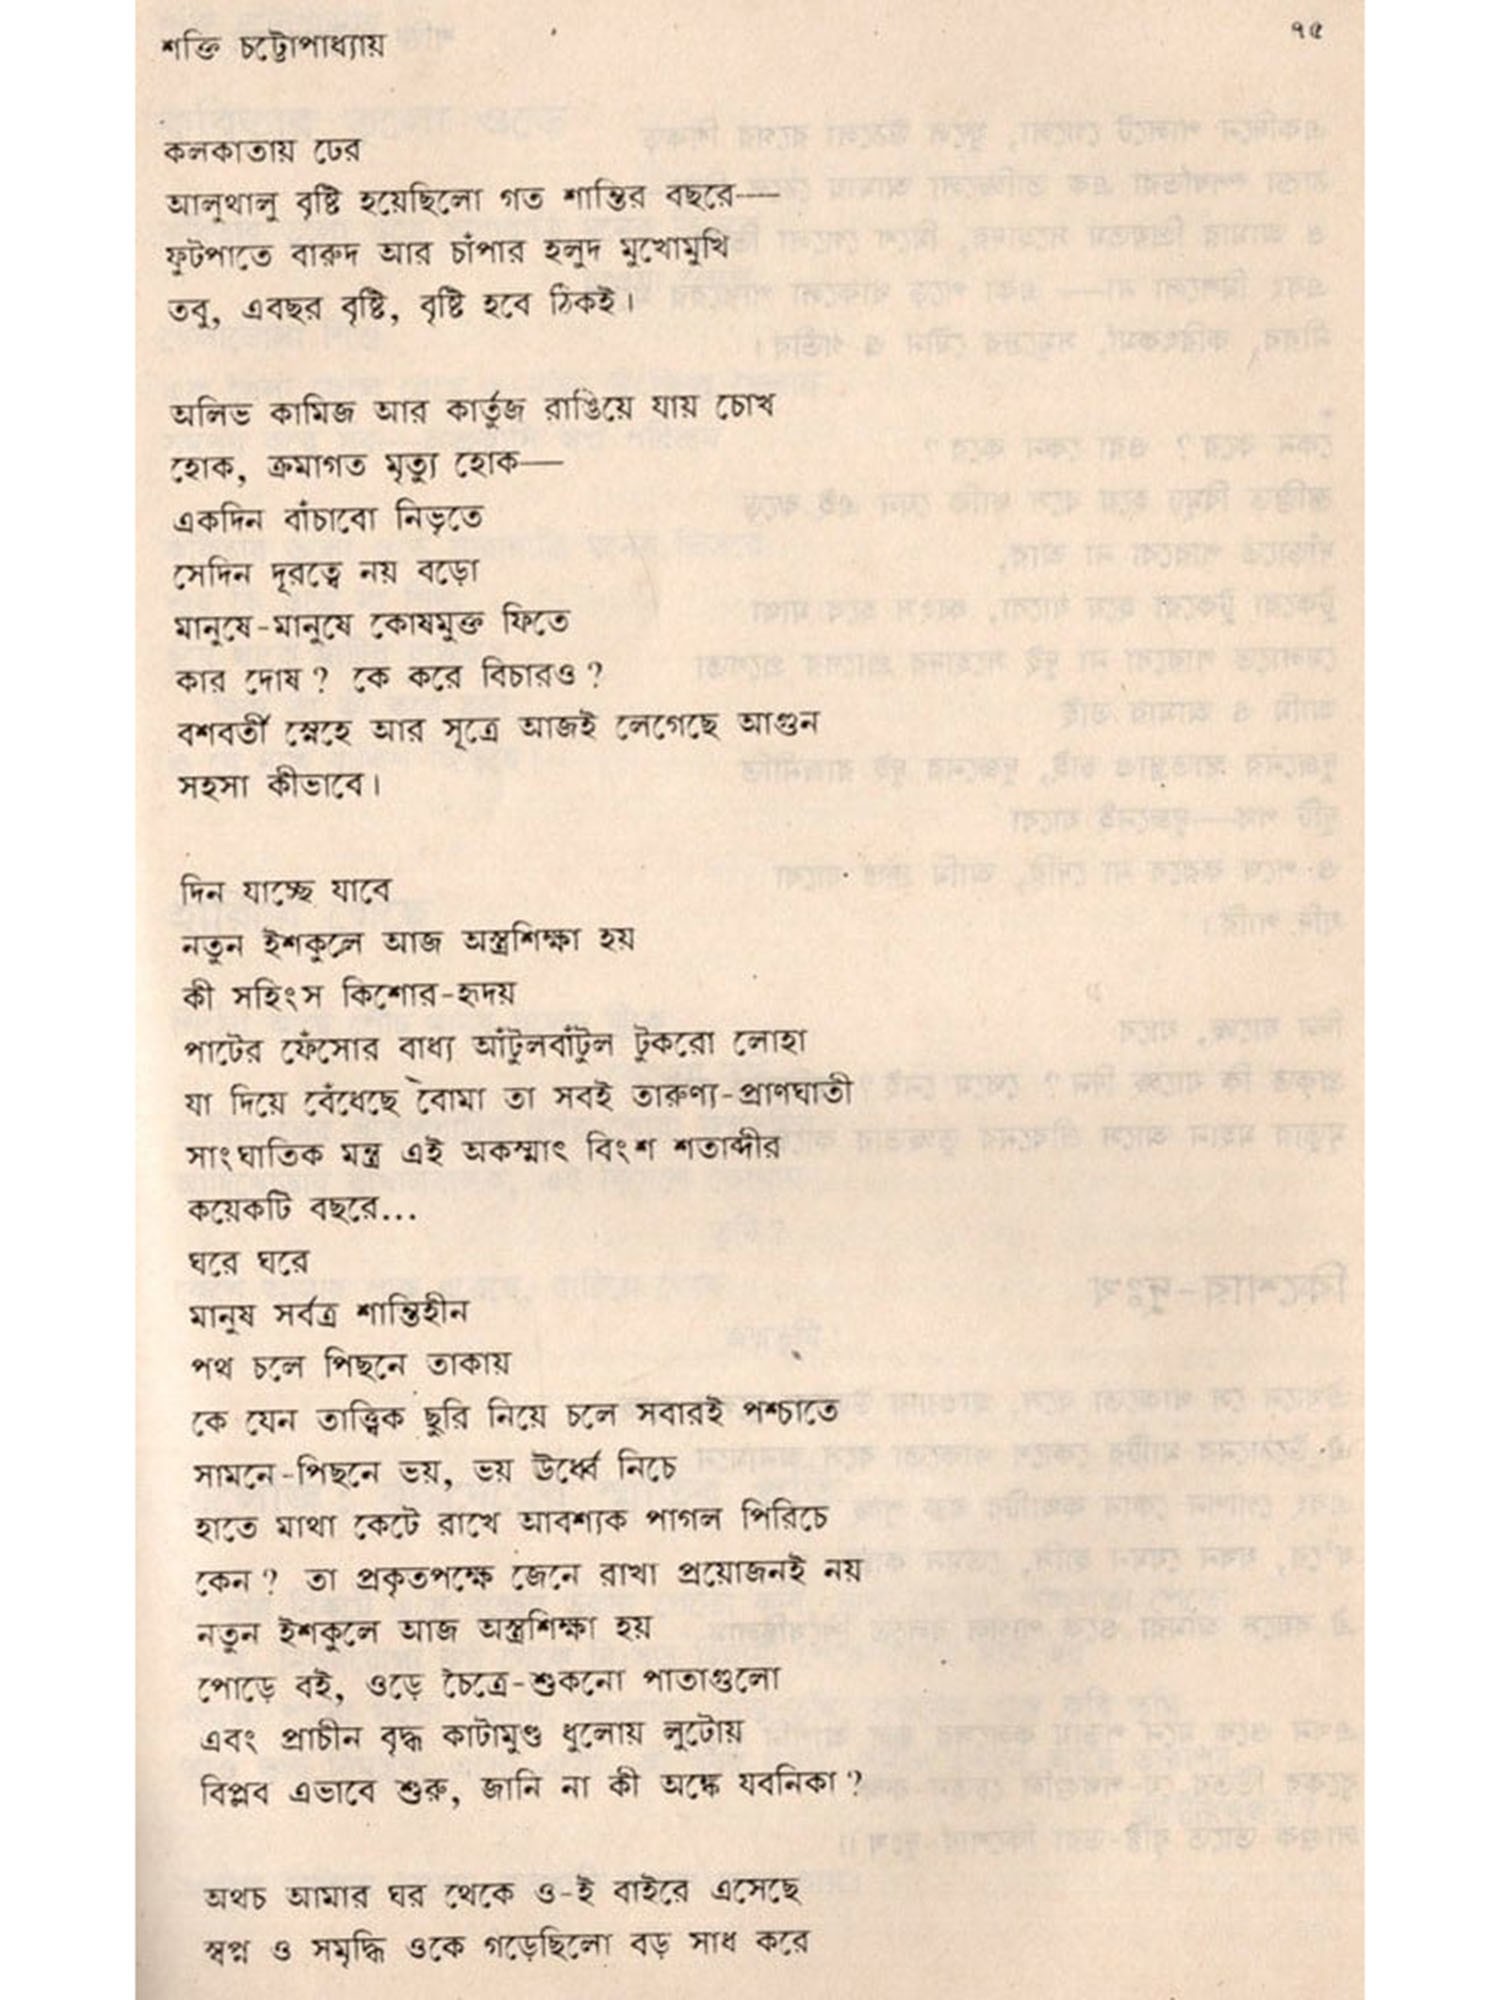 শক্তি চট্টোপাধ্যায়
৭৫
কলকাতায় ঢের
আলুথালু বৃষ্টি হয়েছিলো গত শান্তির বছরে—
ফুটপাতে বারুদ আর চাঁপার হলুদ মুখোমুখি
তবু, এবছর বৃষ্টি, বৃষ্টি হবে ঠিকই।
অলিভ কামিজ আর কার্তুজ রাঙিয়ে যায় চোখ
হোক, ক্রমাগত মৃত্যু হোক—
একদিন বাঁচাবো নিভৃতে
সেদিন দূরত্বে নয় বড়ো
মানুষে-মানুষে কোষমুক্ত ফিতে
কার দোষ? কে করে বিচারও?
বশবর্তী স্নেহে আর সূত্রে আজই লেগেছে আগুন
সহসা কীভাবে।
দিন যাচ্ছে যাবে
নতুন ইশকুলে আজ অস্ত্রশিক্ষা হয়
কী সহিংস কিশোর-হৃদয়
পাটের ফেঁসোর বাধ্য আঁটুলবাঁটুল টুকরো লোহা
যা দিয়ে বেঁধেছে বোমা তা সবই তারুণ্য-প্রাণঘাতী
সাংঘাতিক মন্ত্র এই অকস্মাৎ বিংশ শতাব্দীর
কয়েকটি বছরে...
ঘরে ঘরে
মানুষ সর্বত্র শান্তিহীন
পথ চলে পিছনে তাকায়
কে যেন তাত্ত্বিক ছুরি নিয়ে চলে সবারই পশ্চাতে
সামনে-পিছনে ভয়, ভয় ঊর্ধ্বে নিচে
হাতে মাথা কেটে রাখে আবশ্যক পাগল পিরিচে
কেন? তা প্রকৃতপক্ষে জেনে রাখা প্রয়োজনই নয়
নতুন ইশকুলে আজ অস্ত্রশিক্ষা হয়
পোড়ে বই, ওড়ে চৈত্রে-শুকনো পাতাগুলো
এবং প্রাচীন বৃদ্ধ কাটামুণ্ড ধুলোয় লুটোয়
বিপ্লব এভাবে শুরু, জানি না কী অঙ্কে যবনিকা?
অথচ আমার ঘর থেকে ও-ই বাইরে এসেছে
স্বপ্ন ও সমৃদ্ধি ওকে গড়েছিলো বড় সাধ করে